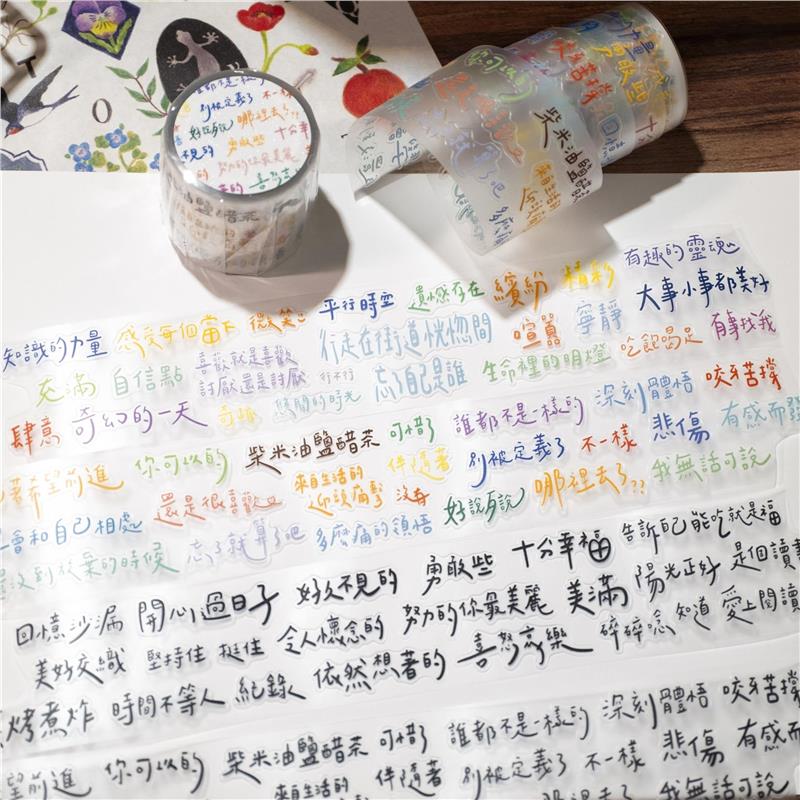 誰都不是一樣的
別被定義了 不一樣
好說歹說 哪裡去了??
不見的 勇敢些 十分幸
努力的你最美麗
喜怒哀
油鹽醋茶
你可以的
咬牙苦撐
勇敢些
柴米油鹽醋
來自生活
有趣的靈魂
知識的力量 感受每個當下 微笑 平行時空 遺憾存在 繽紛 精彩 大事小事都美好
充滿 自信點 喜歡就是喜歡 行走在街道恍惚間 喧囂 寧靜 有事找我
討厭還是討厭 行不行 忘了自己是誰 生命裡的明燈 吃飽喝足
肆意 奇幻的一天 奇妙 悠閒的時光 深刻體悟 咬牙苦撐
著希望前進 你可以的 柴米油鹽醋茶 可惜了 誰都不是一樣的 悲傷 有感而發
還是很喜歡 來自生活的 伴隨著 別被定義了 不一樣
會和自己相處 迎頭痛擊 沒有 好說歹說 哪裡去了?? 我無話可說
還沒到放棄的時候 忘了就算了吧 多麼痛的領悟
回憶沙漏 開心過日子 好久不見的 勇敢些 十分幸福 告訴自己能吃就是福
美好交織 堅持住 挺住 令人懷念的 努力的你最美麗 美滿 陽光正好 是個讀書
烤煮炸 時間不等人 紀錄 依然想著的 喜怒哀樂 碎碎唸 知道 愛上閱讀
望前進 你可以的 柴米油鹽醋茶 可惜了 誰都不是一樣的 深刻體悟 咬牙苦撐
來自生活的 伴隨著 別被定義了 不一樣 悲傷 有感而
我無話可說